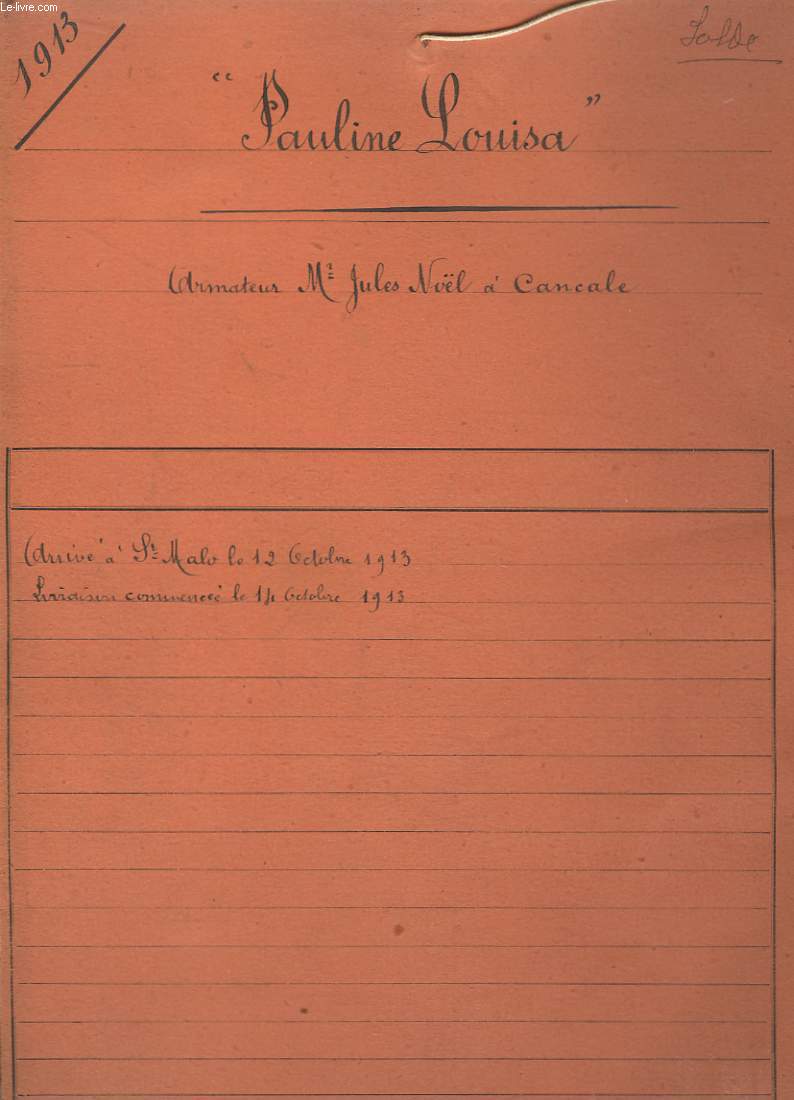 Le-livre.com
1913
Solde
"Pauline Louisa"
Armateur Mr Jules Noël à Cancale
Arrivé à St Malo le 12 Octobre 1913
Livraison commencée le 14 Octobre 1913